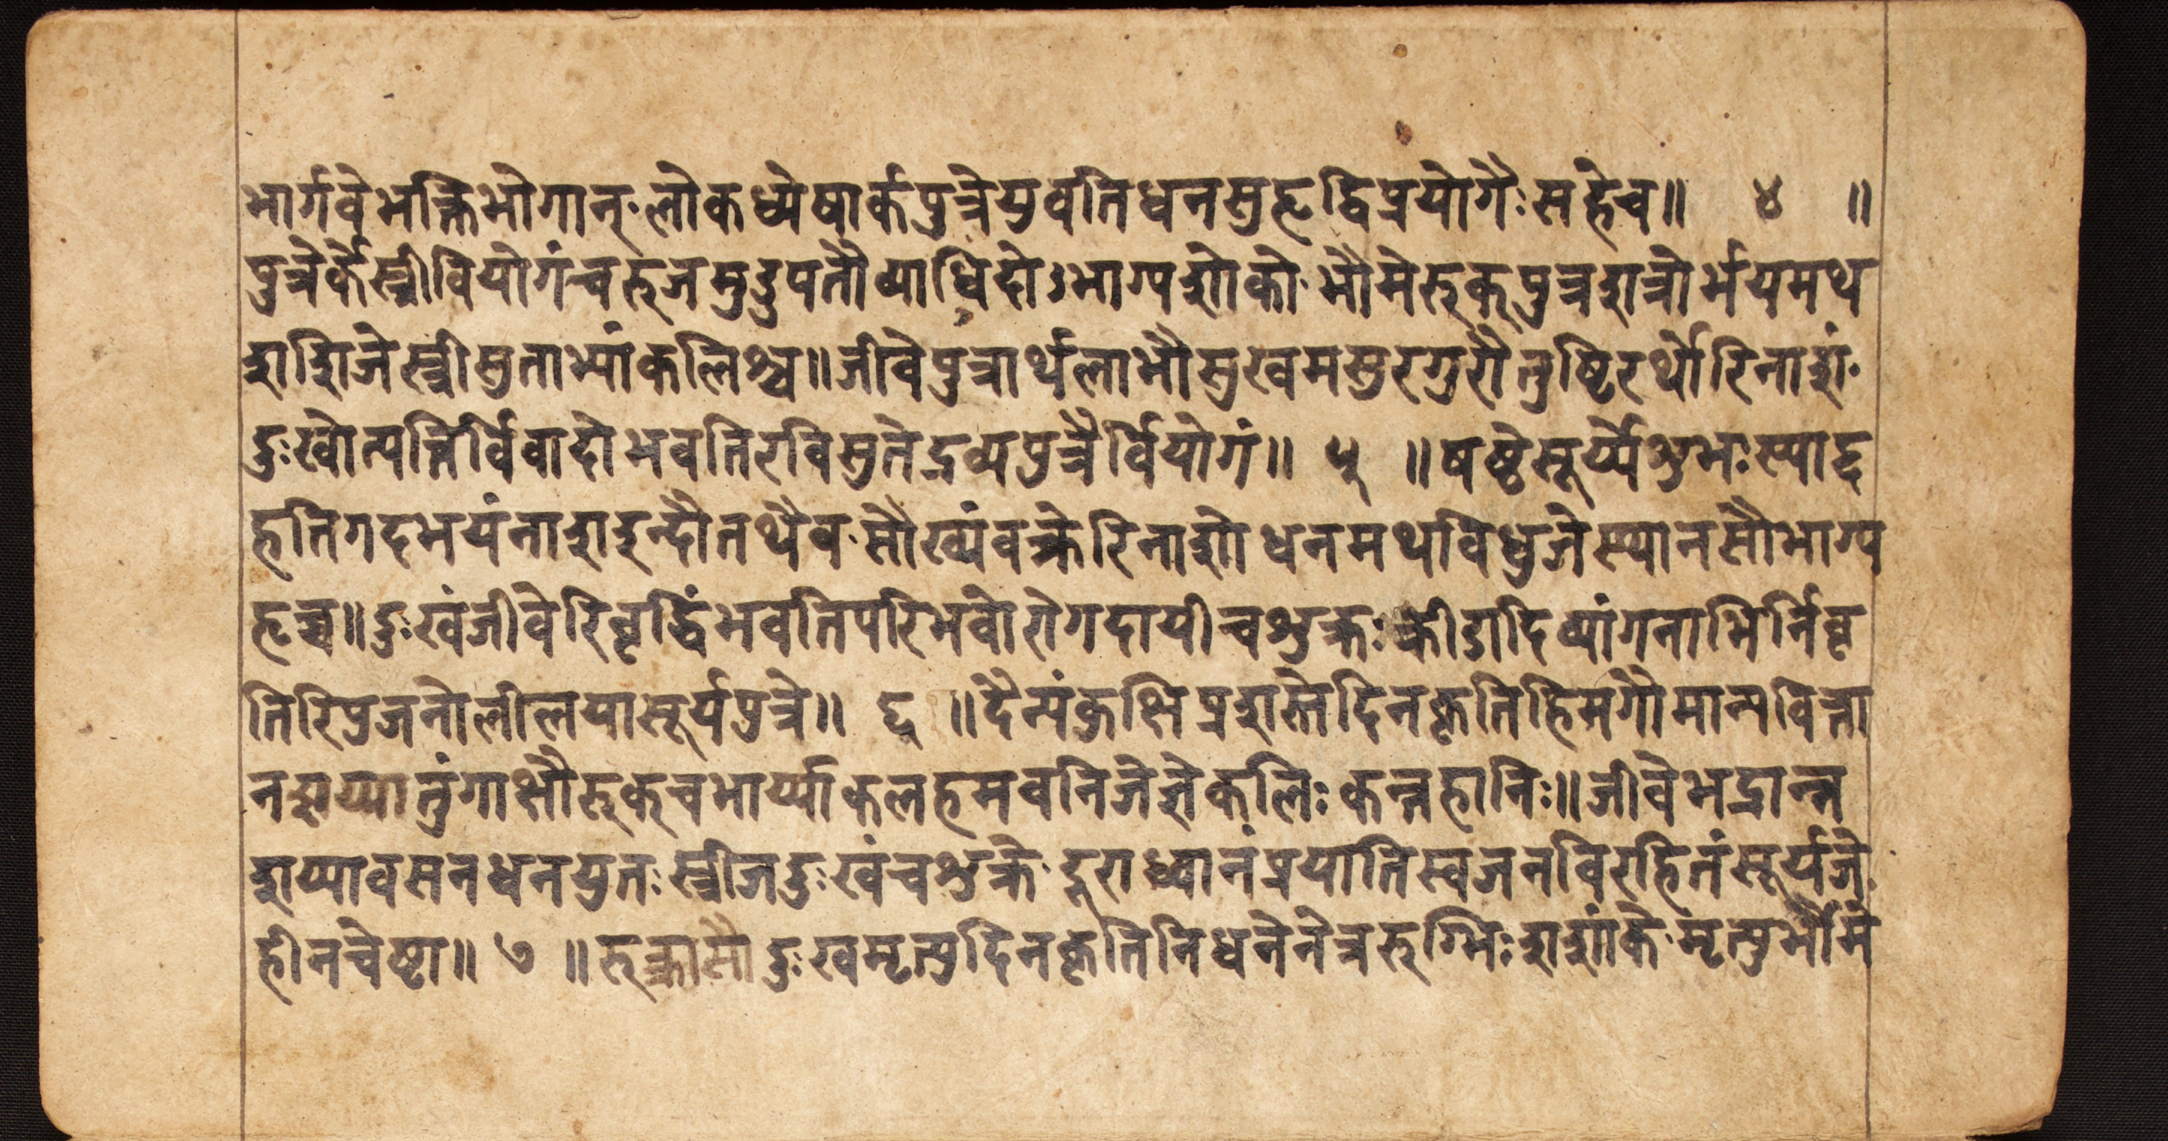 भार्गवेभक्तिभोगान् लोकध्येषार्कपुत्रेयुवतिधनसुहृद्विप्रयोगैः सहेच॥ ४ ॥
पुत्रेर्केस्त्रीवियोगंच रुजमुडुपतौव्याधिदोऽभाग्यशोको भौमेरुक्पुत्रशत्रोर्भयमथ
शशिजेस्त्रीसुताभ्यांकलिश्च॥जीवेपुत्रार्थलाभौसुखमसुरगुरौतुष्टिरर्थोरिनाशं
दुःखोत्पत्तिर्विवादोभवतिरविसुतेद्रव्यपुत्रैर्वियोगं॥ ५ ॥षष्ठेसूर्य्येशुभःस्याद्द
हतिगदभयंनाशशइन्दौतथैव सौख्यंवक्रेरिनाशोधनमथविधुजेस्यानसौभाग्य
हृच्च॥दुःखंजीवेरिवृद्धिंभवतिपरिभवोरोगदायीचशुक्रः क्रीडादिव्यांगनाभिर्निवृ
तिरिपुजनोलीलयासूर्यपुत्रे॥ ६ ॥दैन्यंकुक्षिप्रशस्तोदिनकृतिहिमगौमान्यवित्ता
नशय्यातुंगाक्षौरुक्चभार्य्याकलहमवनिजेज्ञेकलिः कन्नहानिः॥जीवेभद्रान्न
शय्यावसनधनयुतः स्त्रीजदुःखंचशुक्रे दूराध्वानंप्रयातिस्वजनविरहितंसूर्यजे
हीनचेष्टा॥ ७ ॥रुक्त्रासौदुःखमृत्युदिनकृतिनिधनेनेत्ररुग्भिः शशांके मृत्युर्भौमे